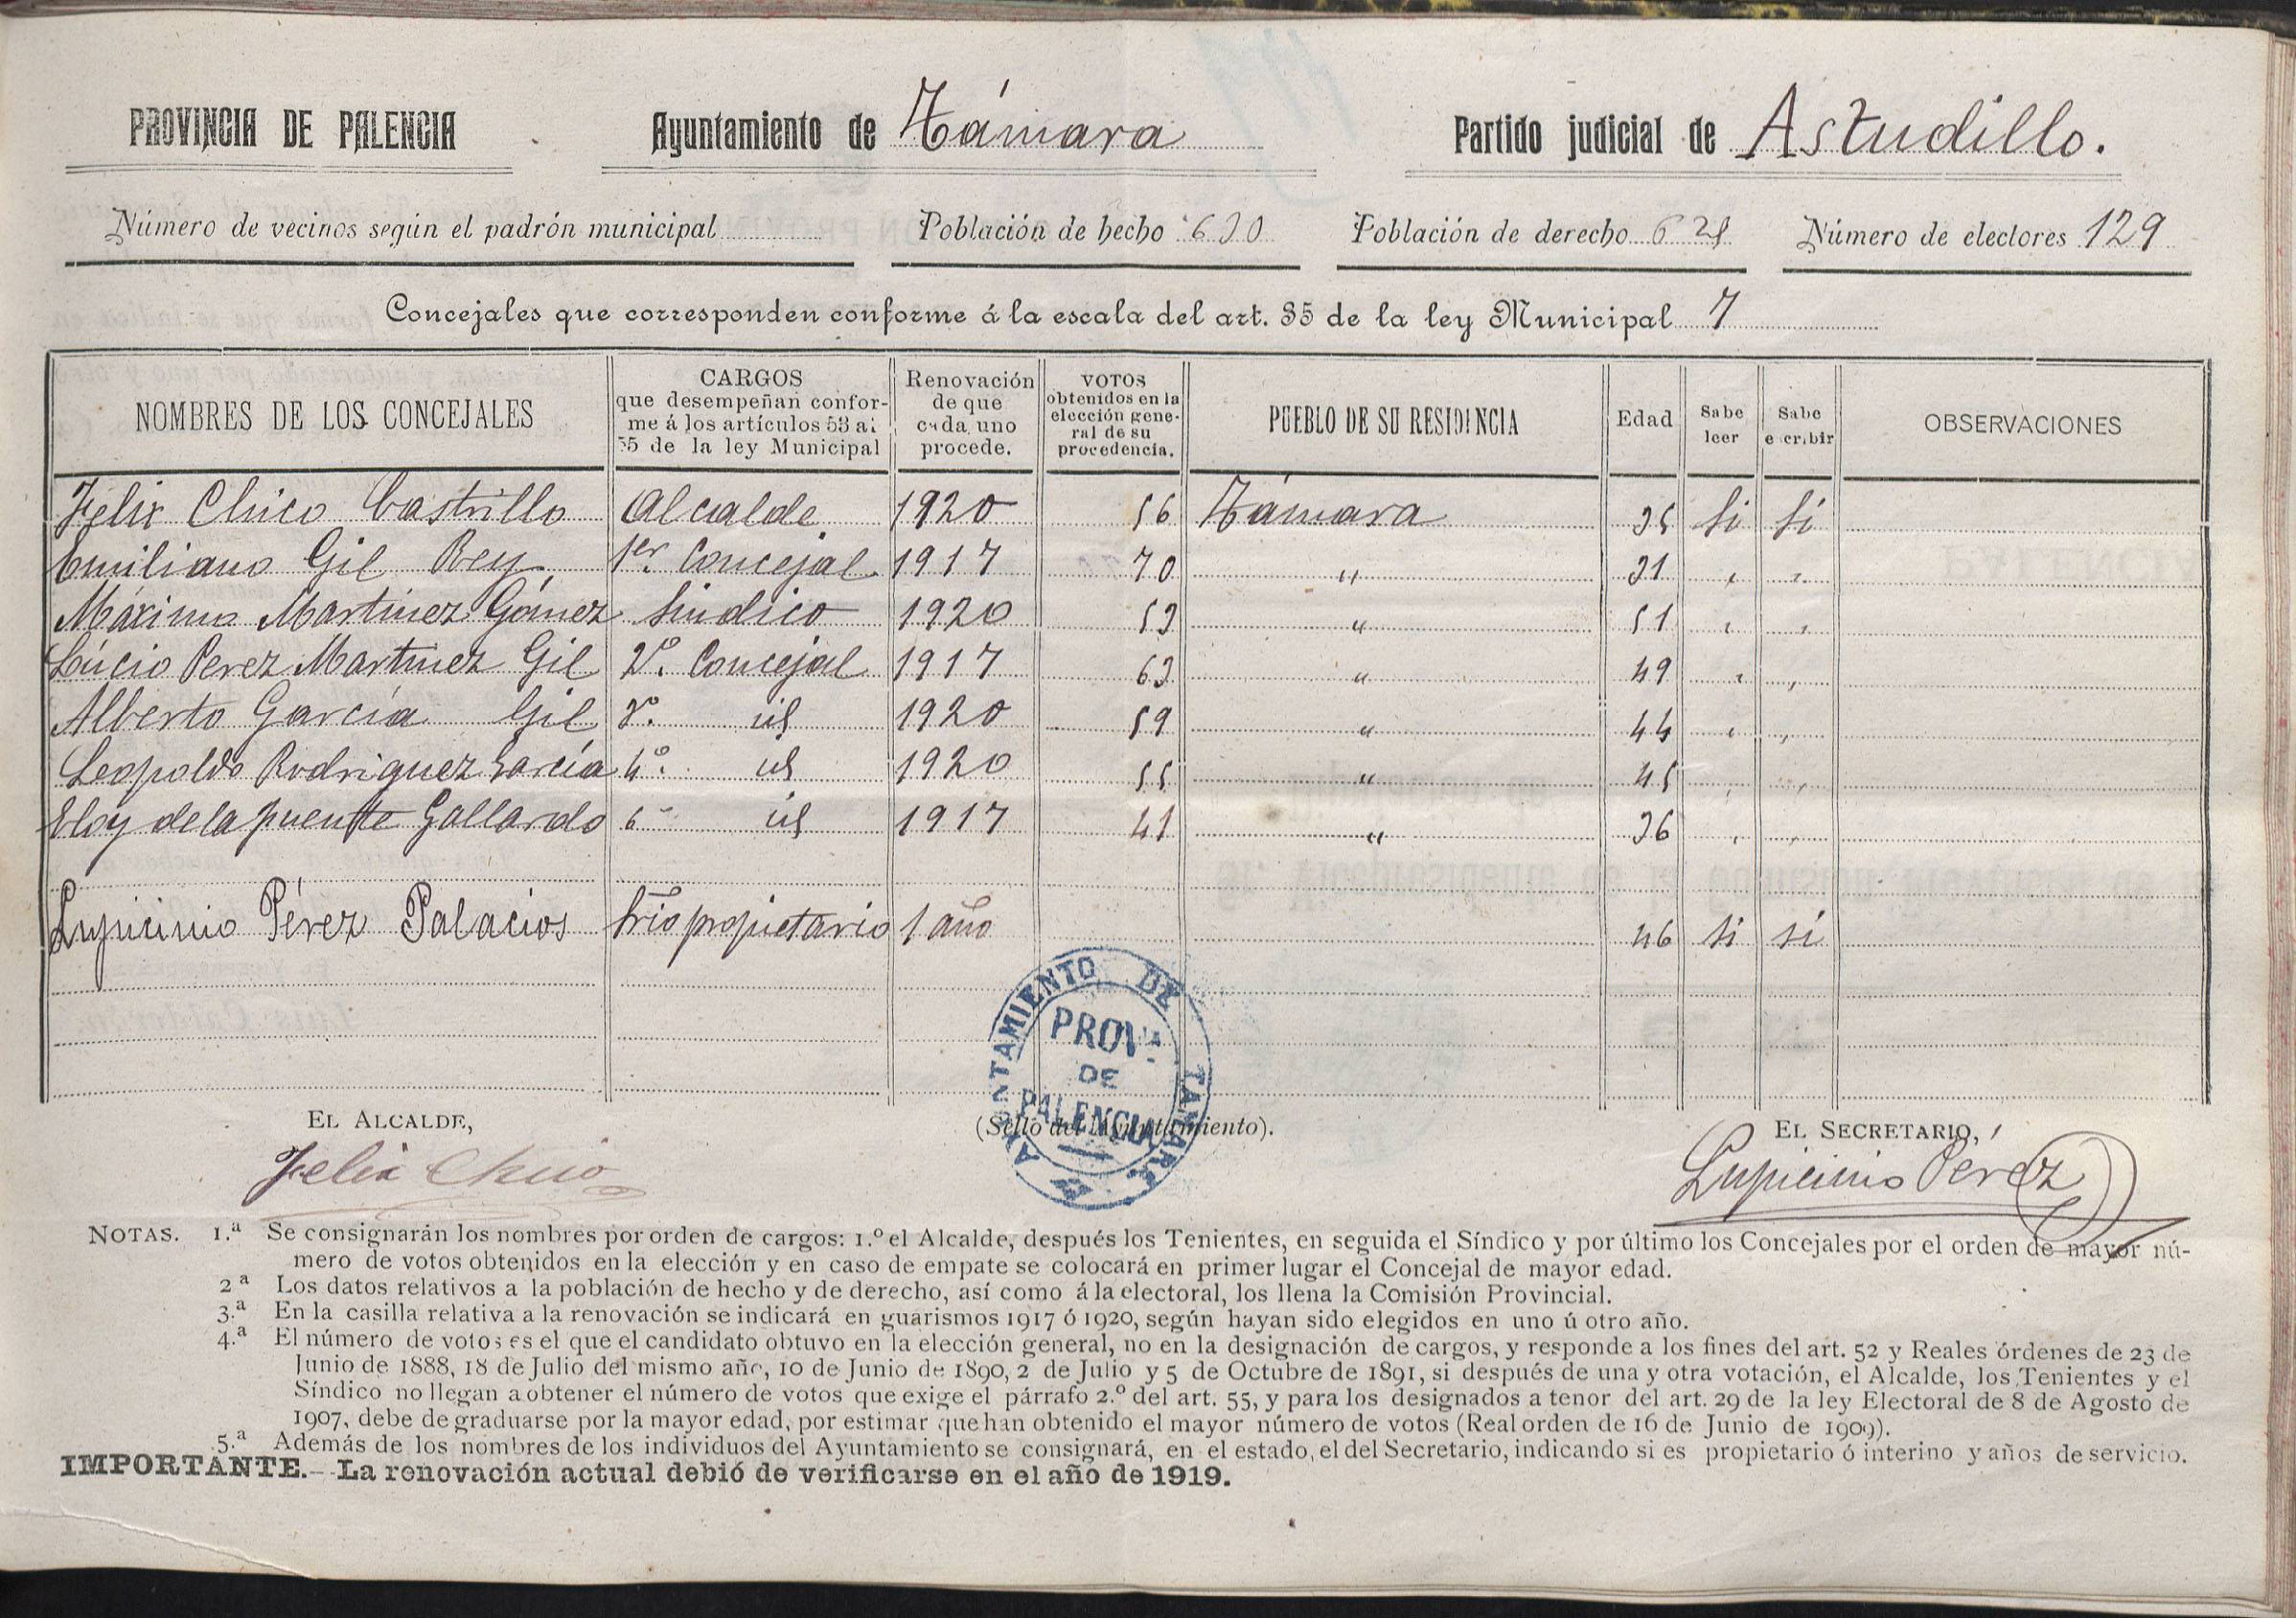 PROVINCIA DE PALENCIA Ayuntamiento de Támara Partido judicial de Astudillo.
Número de vecinos según el padrón municipal Población de hecho 630 Población de derecho Número de electores 129
Concejales que corresponden conforme á la escala del art. 35 de la ley Municipal 7
NOMBRES DE LOS CONCEJALES CARGOS que desempeñan conforme á los artículos 53 al 55 de la ley Municipal Renovación de que cada uno procede. VOTOS obtenidos en la elección general de su procedencia. PUEBLO DE SU RESIDENCIA Edad Sabe leer Sabe escribir OBSERVACIONES
Felix Chico Castrillo Alcalde 1920 56 Támara 35 Si Sí
Emiliano Gil Rey 1er. Concejal 1917 70 " 31 " "
Máximo Martinez Gómez Sindico 1920 53 " 51 " "
Lúcio Perez Martinez Gil 2º. Concejal 1917 63 " 49 " "
Alberto García Gil 3º. id 1920 59 " 44 " "
Leopoldo Rodriguez García 4º. id 1920 55 " 45 " "
Eloy de la Puente Gallardo 6º id 1917 41 " 36 " "
Lupicinio Pérez Palacios Srio propietario 1 año 46 Si sí
EL ALCALDE, (Sello del Ayuntamiento). EL SECRETARIO,
Felix Chico AYUNTAMIENTO DE TAMARA PROV.ª DE PALENCIA Lupicinio Perez
NOTAS. 1.ª Se consignarán los nombres por orden de cargos: 1.º el Alcalde, después los Tenientes, en seguida el Síndico y por último los Concejales por el orden de mayor nú-
mero de votos obtenidos en la elección y en caso de empate se colocará en primer lugar el Concejal de mayor edad.
2ª Los datos relativos a la población de hecho y de derecho, así como á la electoral, los llena la Comisión Provincial.
3.ª En la casilla relativa a la renovación se indicará en guarismos 1917 ó 1920, según hayan sido elegidos en uno ú otro año.
4.ª El número de votos es el que el candidato obtuvo en la elección general, no en la designación de cargos, y responde a los fines del art. 52 y Reales órdenes de 23 de
Junio de 1888, 18 de Julio del mismo año, 10 de Junio de 1890, 2 de Julio y 5 de Octubre de 1891, si después de una y otra votación, el Alcalde, los Tenientes y el
Síndico no llegan a obtener el número de votos que exige el párrafo 2.º del art. 55, y para los designados a tenor del art. 29 de la ley Electoral de 8 de Agosto de
1907, debe de graduarse por la mayor edad, por estimar que han obtenido el mayor número de votos (Real orden de 16 de Junio de 1909).
5.ª Además de los nombres de los individuos del Ayuntamiento se consignará, en el estado, el del Secretario, indicando si es propietario ó interino y años de servicio.
IMPORTANTE.—La renovación actual debió de verificarse en el año de 1919.